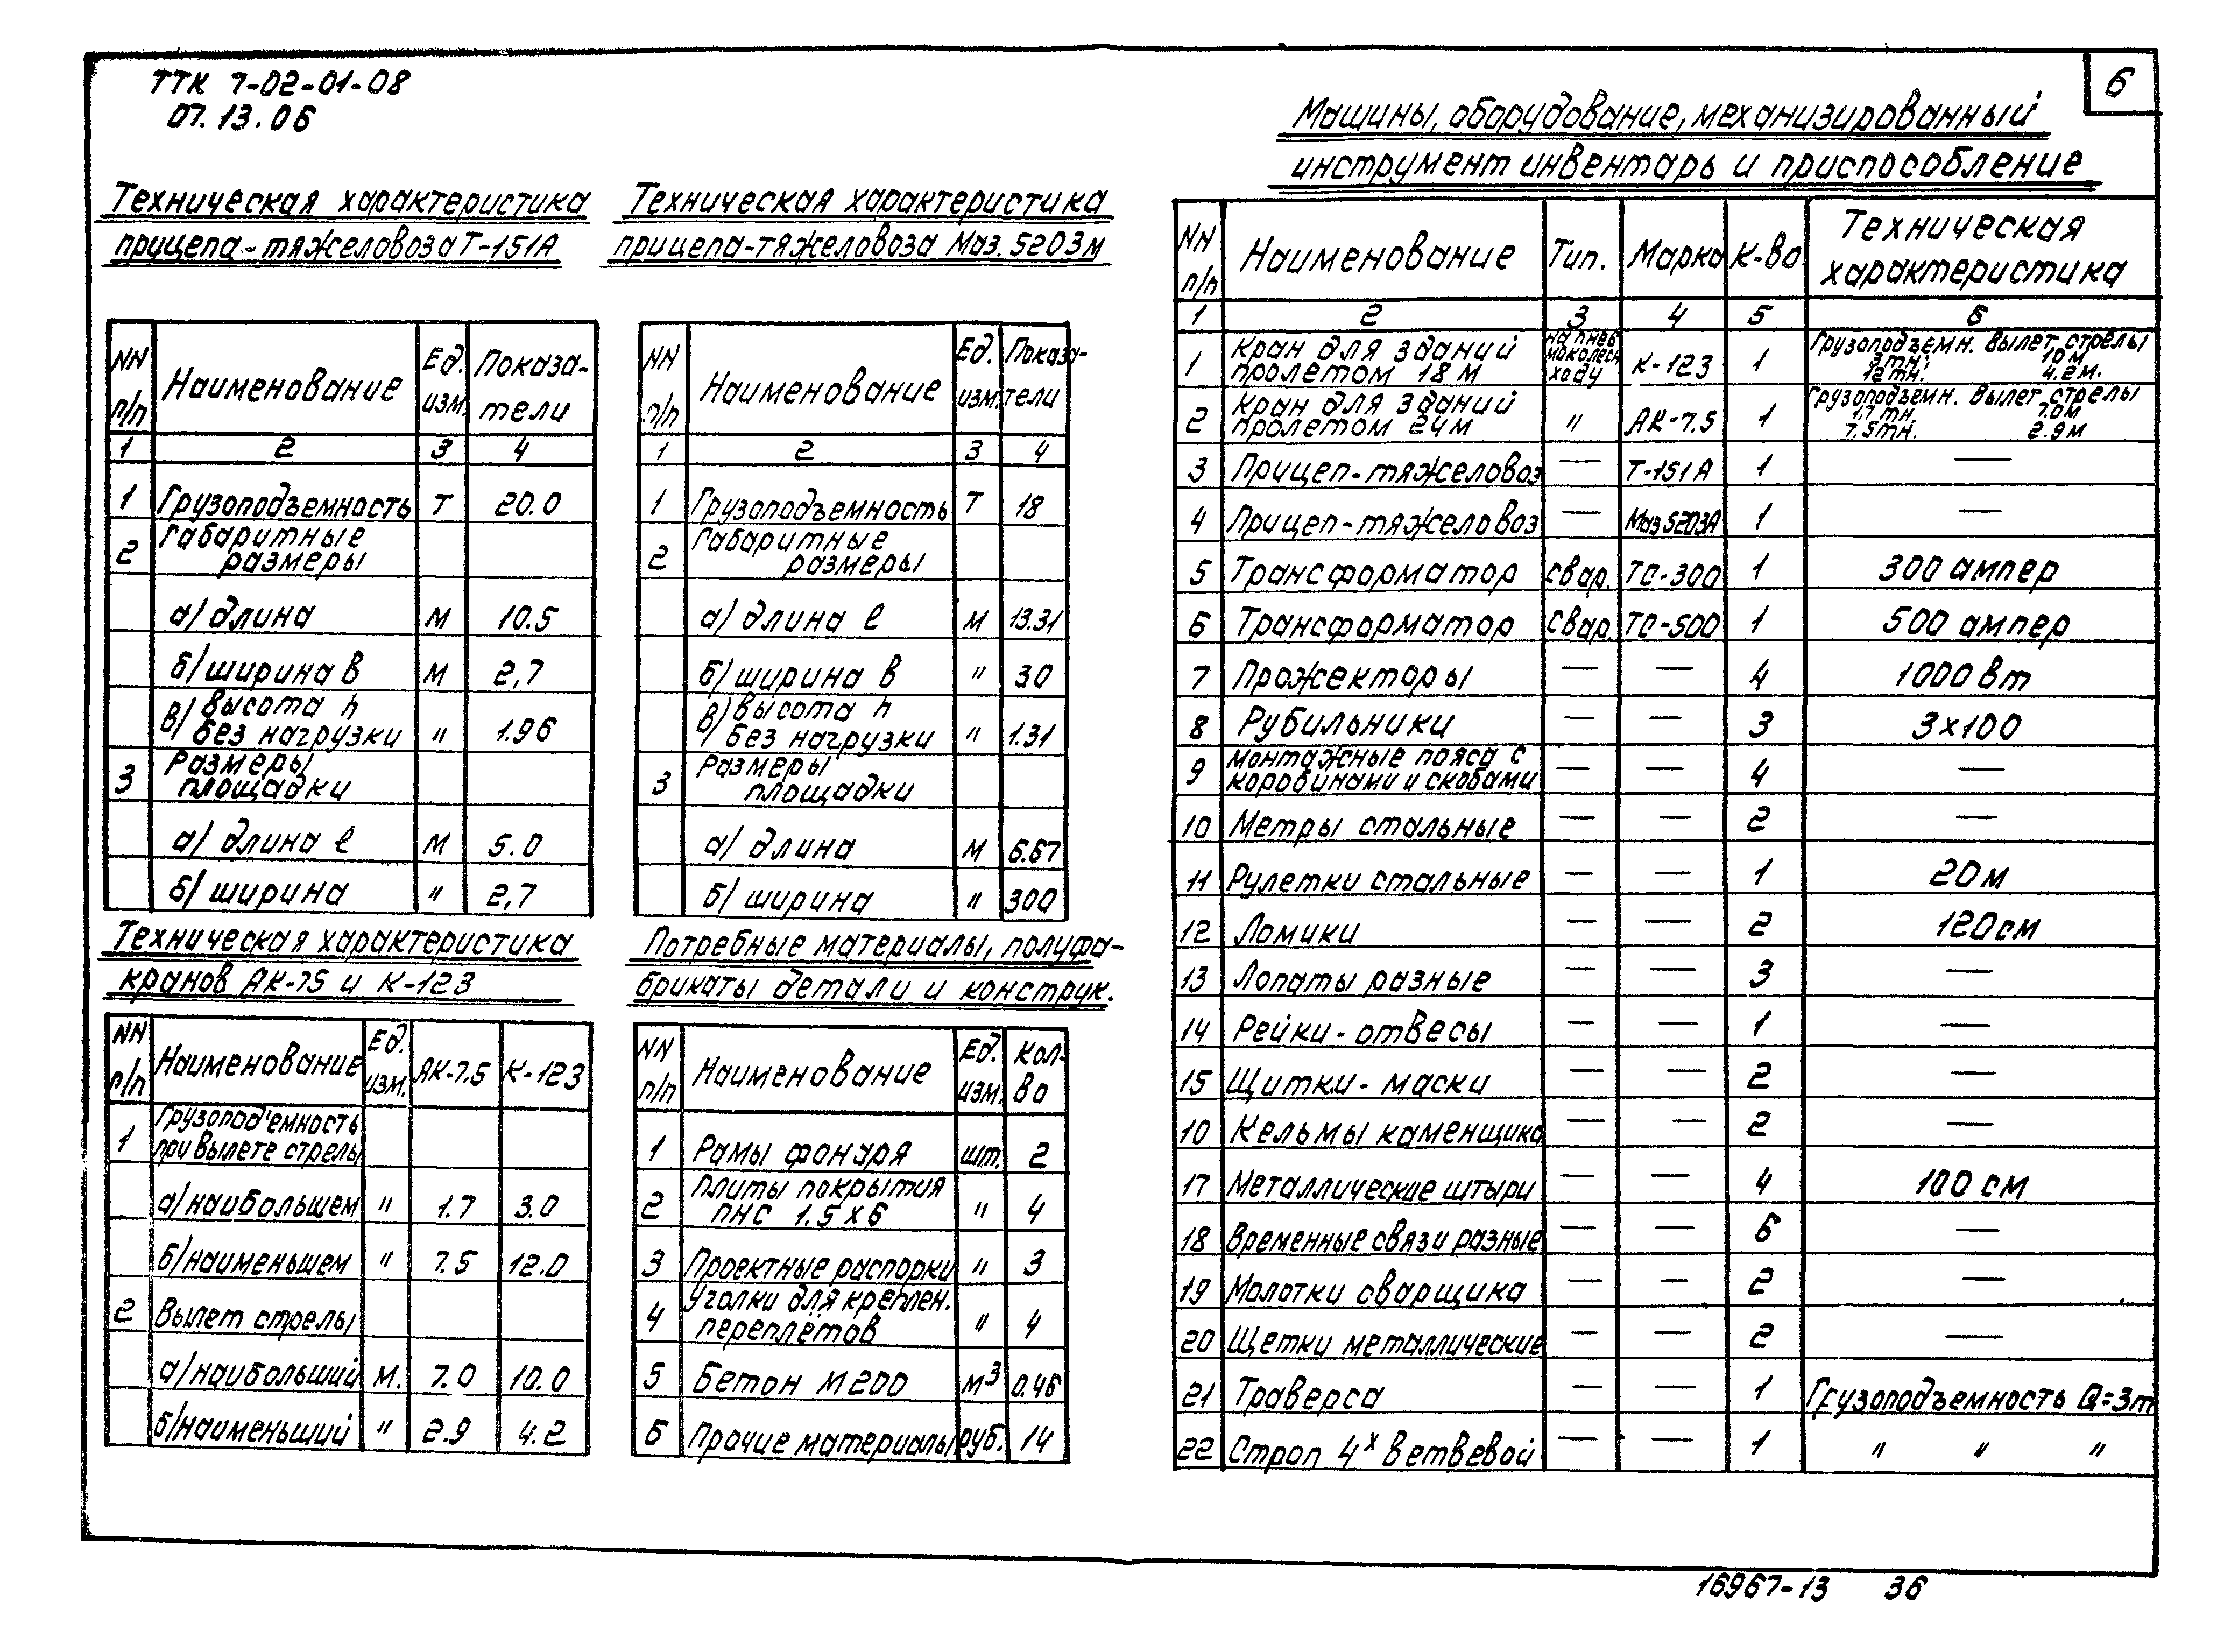 ТТК 7-02-01-08
07.13.06
6
Техническая характеристика
прицепа-тяжеловоза Т-151А
NN п/п Наименование Ед. изм. Показа-тели
1 2 3 4
1 Грузоподъемность т 20.0
2 Габаритные размеры
а/ длина м 10.5
б/ ширина в м 2,7
в/ высота h без нагрузки " 1.96
3 Размеры площадки
а/ длина ℓ м 5.0
б/ ширина " 2,7
Техническая характеристика
прицепа-тяжеловоза Маз. 5203м
NN п/п Наименование Ед. изм. Показа-тели
1 2 3 4
1 Грузоподъемность т 18
2 Габаритные размеры
а/ длина ℓ м 13.31
б/ ширина в " 30
в/ высота h без нагрузки " 1.31
3 Размеры площадки
а/ длина м 6.67
б/ ширина " 300
Техническая характеристика
кранов АК-75 и К-123
NN п/п Наименование Ед. изм. АК-7.5 К-123
1 Грузопод'емность при вылете стрелы
а/ наибольшем " 1.7 3.0
б/ наименьшем " 7.5 12.0
2 Вылет стрелы
а/ наибольший м. 7.0 10.0
б/ наименьший " 2.9 4.2
Потребные материалы, полуфа-
брикаты детали и конструк.
NN п/п Наименование Ед. изм. Кол-во
1 Рамы фонаря шт. 2
2 Плиты покрытия ПНС 1.5х6 " 4
3 Проектные распорки " 3
4 Уголки для креплен. переплётов " 4
5 Бетон М200 м³ 0.46
6 Прочие материалы руб. 14
Машины, оборудование, механизированный
инструмент инвентарь и приспособление
NN п/п Наименование Тип. Марка К-во Техническая характеристика
1 2 3 4 5 6
1 Кран для зданий пролетом 18 м на пнев моколесн ходу К-123 1 Грузоподъемн. Вылет стрелы
3тн. 10 м
12 тн. 4.2 м.
2 Кран для зданий пролетом 24м " АК-7.5 1 Грузоподъемн. Вылет стрелы
1.7 тн. 7.0м
7.5тн. 2.9м
3 Прицеп-тяжеловоз — Т-151А 1 —
4 Прицеп-тяжеловоз — Маз5203А 1 —
5 Трансформатор свар. ТС-300 1 300 ампер
6 Трансформатор свар. ТС-500 1 500 ампер
7 Прожекторы — — 4 1000 вт
8 Рубильники — — 3 3х100
9 Монтажные пояса с коробинами и скобами — — 4 —
10 Метры стальные — — 2 —
11 Рулетки стальные — — 1 20м
12 Ломики — — 2 120см
13 Лопаты разные — — 3 —
14 Рейки-отвесы — — 1 —
15 Щитки-маски — — 2 —
10 Кельмы каменщика — — 2 —
17 Металлические штыри — — 4 100 см
18 Временные связи разные — — 6 —
19 Молотки сварщика — — 2 —
20 Щетки металлические — — 2 —
21 Траверса — — 1 Грузоподъемность Q=3т
22 Строп 4ˣ ветвевой — — 1 " " "
16967-13 36